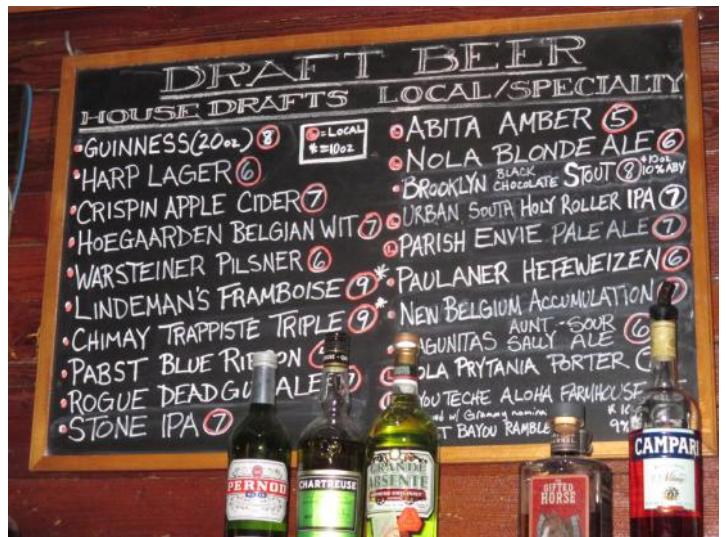 DRAFT BEER
HOUSE DRAFTS
L = LOCAL
* = 10oz
GUINNESS (20oz) 8
HARP LAGER 6
CRISPIN APPLE CIDER 7
HOEGAARDEN BELGIAN WIT 7
WARSTEINER PILSNER 6
LINDEMAN'S FRAMBOISE 9*
CHIMAY TRAPPISTE TRIPLE 9*
PABST BLUE
ROGUE DEAD ALE
STONE IPA 7
LOCAL/SPECIALTY
L ABITA AMBER 5
L NOLA BLONDE ALE 6
BROOKLYN BLACK CHOCOLATE STOUT 8 *10oz 10% ABV
L URBAN SOUTH HOLY ROLLER IPA 7
L PARISH ENVIE PALE ALE 7
PAULANER HEFEWEIZEN 6
NEW BELGIUM ACCUMULATION
AUNT SOUR
SALLY ALE 6
PRYTANIA PORTER
TECHE ALOHA FARMHOUSE
w/ Grammy
BAYOU
PERNOD
CHARTREUSE
GRANDE
ABSENTE
GIFTED
HORSE
CAMPARI